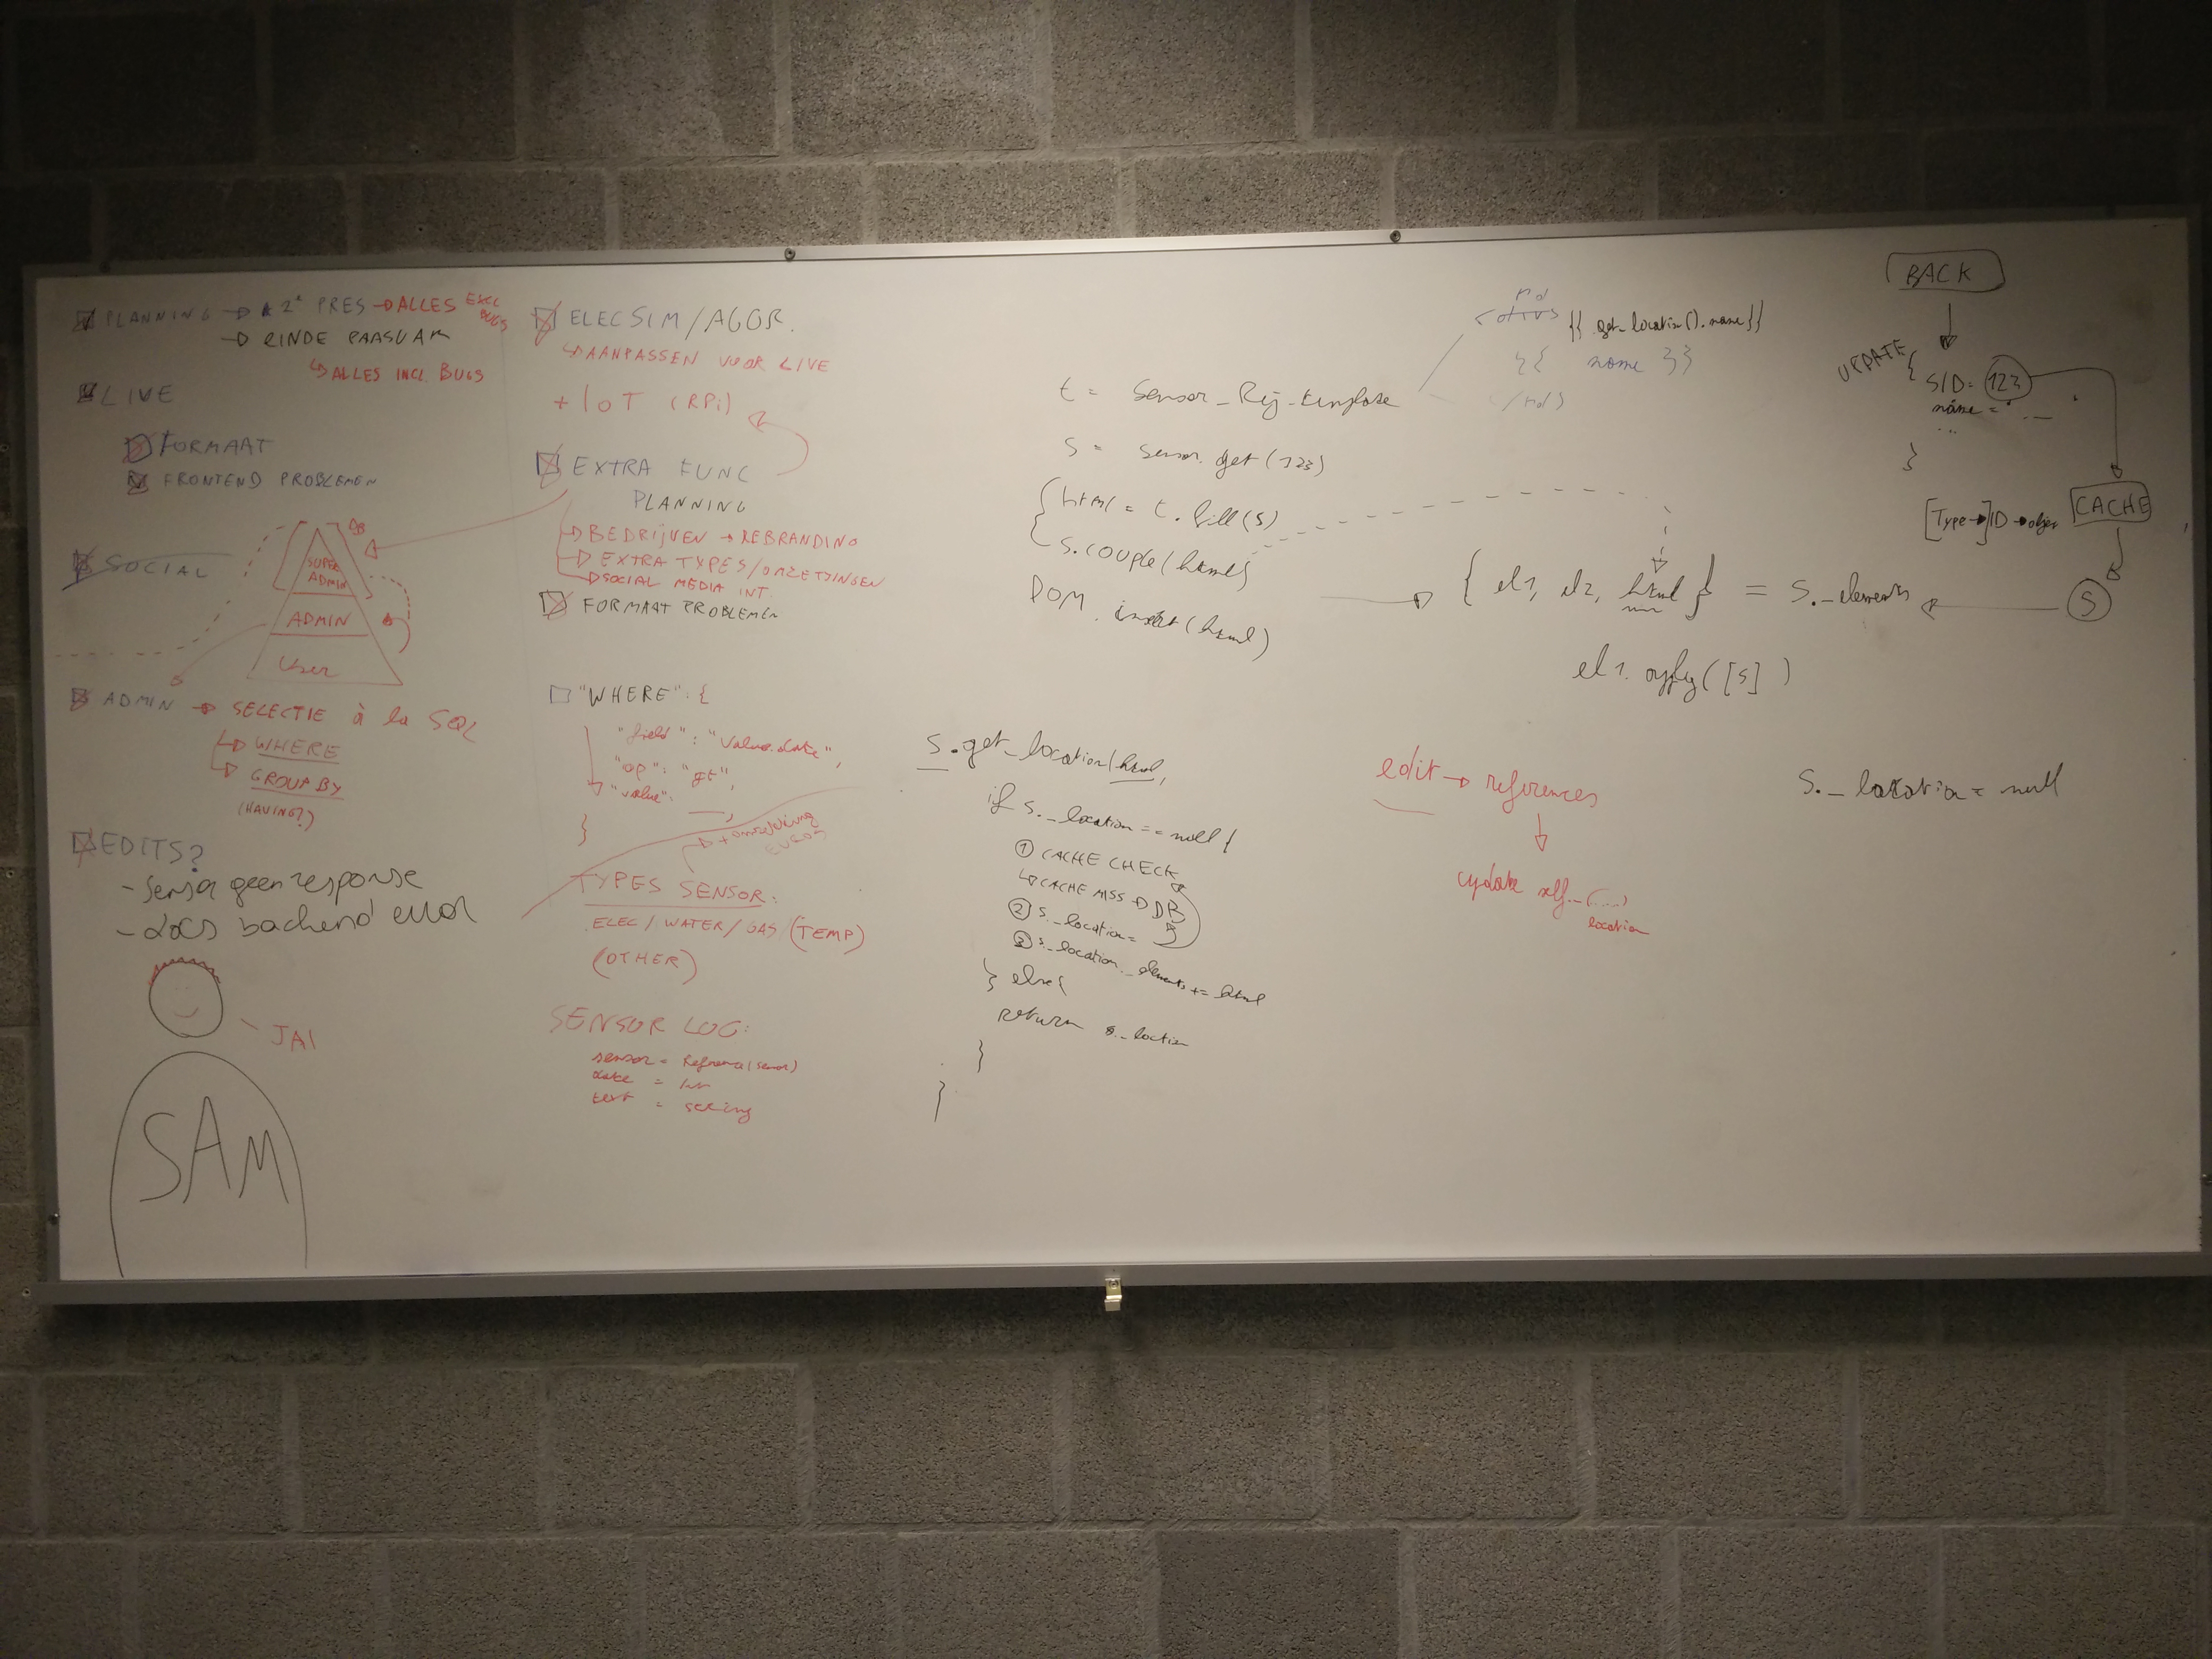 PLANNING → 2e PRES → ALLES EXCL BUGS
→ EINDE PAASVAK
↳ ALLES INCL. BUGS
LIVE
FORMAAT
FRONTEND PROBLEMEN
SOCIAL
DB
SUPER ADMIN
ADMIN
User
ADMIN → SELECTIE à la SQL
↳ WHERE
↳ GROUP BY
(HAVING?)
EDITS?
- Sensor geen response
- docs backend error
JA!
SAM
ELECSIM/AGGR.
↳ AANPASSEN VOOR LIVE
+ IoT (RPi)
EXTRA FUNC
PLANNING
→ BEDRIJVEN → REBRANDING
→ EXTRA TYPES/OMZETTINGEN
→ SOCIAL MEDIA INT.
FORMAAT PROBLEMEN
"WHERE": {
"field": "Value.date",
"op": "gt",
"value": __,
}
→ + omzetting EUROS
TYPES SENSOR:
ELEC/WATER/GAS/(TEMP)
(OTHER)
SENSOR LOG:
sensor = Reference(sensor)
date = Int
text = string
t = Sensor_Rij_template
s = sensor.get(123)
{ html = t.fill(s)
s.couple(html)
DOM.insert(html)
{{ get_location().name }}
{{ name }}
{ el1, el2, html } = S._elements
el1.apply([s])
s.get_location(html,
if s._location == null {
① CACHE CHECK
↳ CACHE MISS → DB
② s._location =
③ s._location._elements += html
} else {
return s._location
}
}
edit → references
update self._(.....)
location
S._location = null
BACK
UPDATE {
SID = 123
name = "...
...
}
[Type →] ID → object
CACHE
S